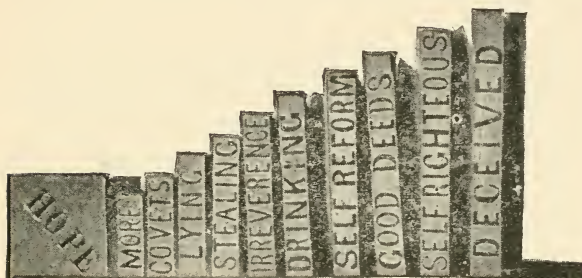 HOPE
MORE
COVETS
LYING
STEALING
IRREVERENCE
DRINKING
SELF REFORM
GOOD DEEDS
SELF RIGHTEOUS
DECEIVED